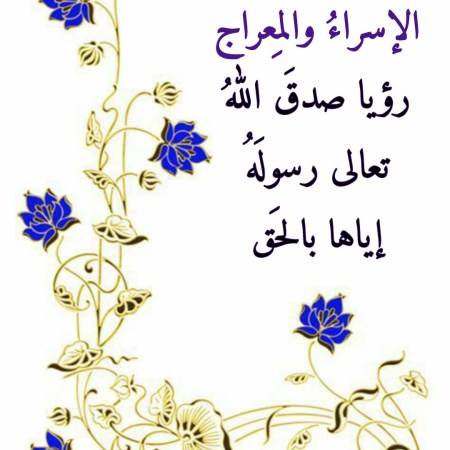 الإسراءُ والمِعراج
رؤيا صدقَ اللهُ
تعالى رسولَهُ
إياها بالحَق